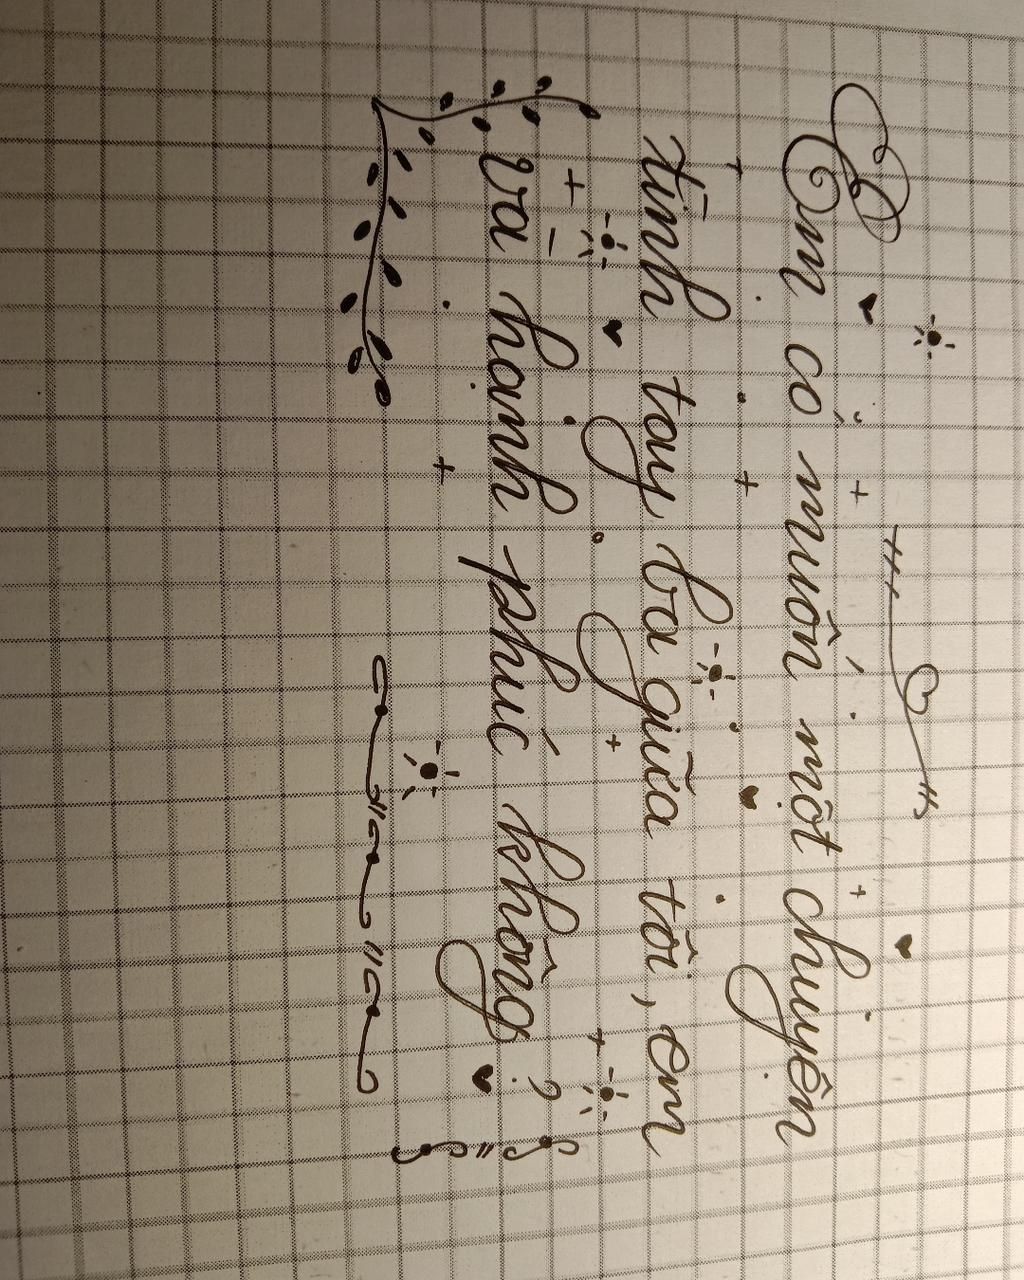 Em có muốn một chuyện
tình tay ba giữa tôi, em
và hạnh phúc không?